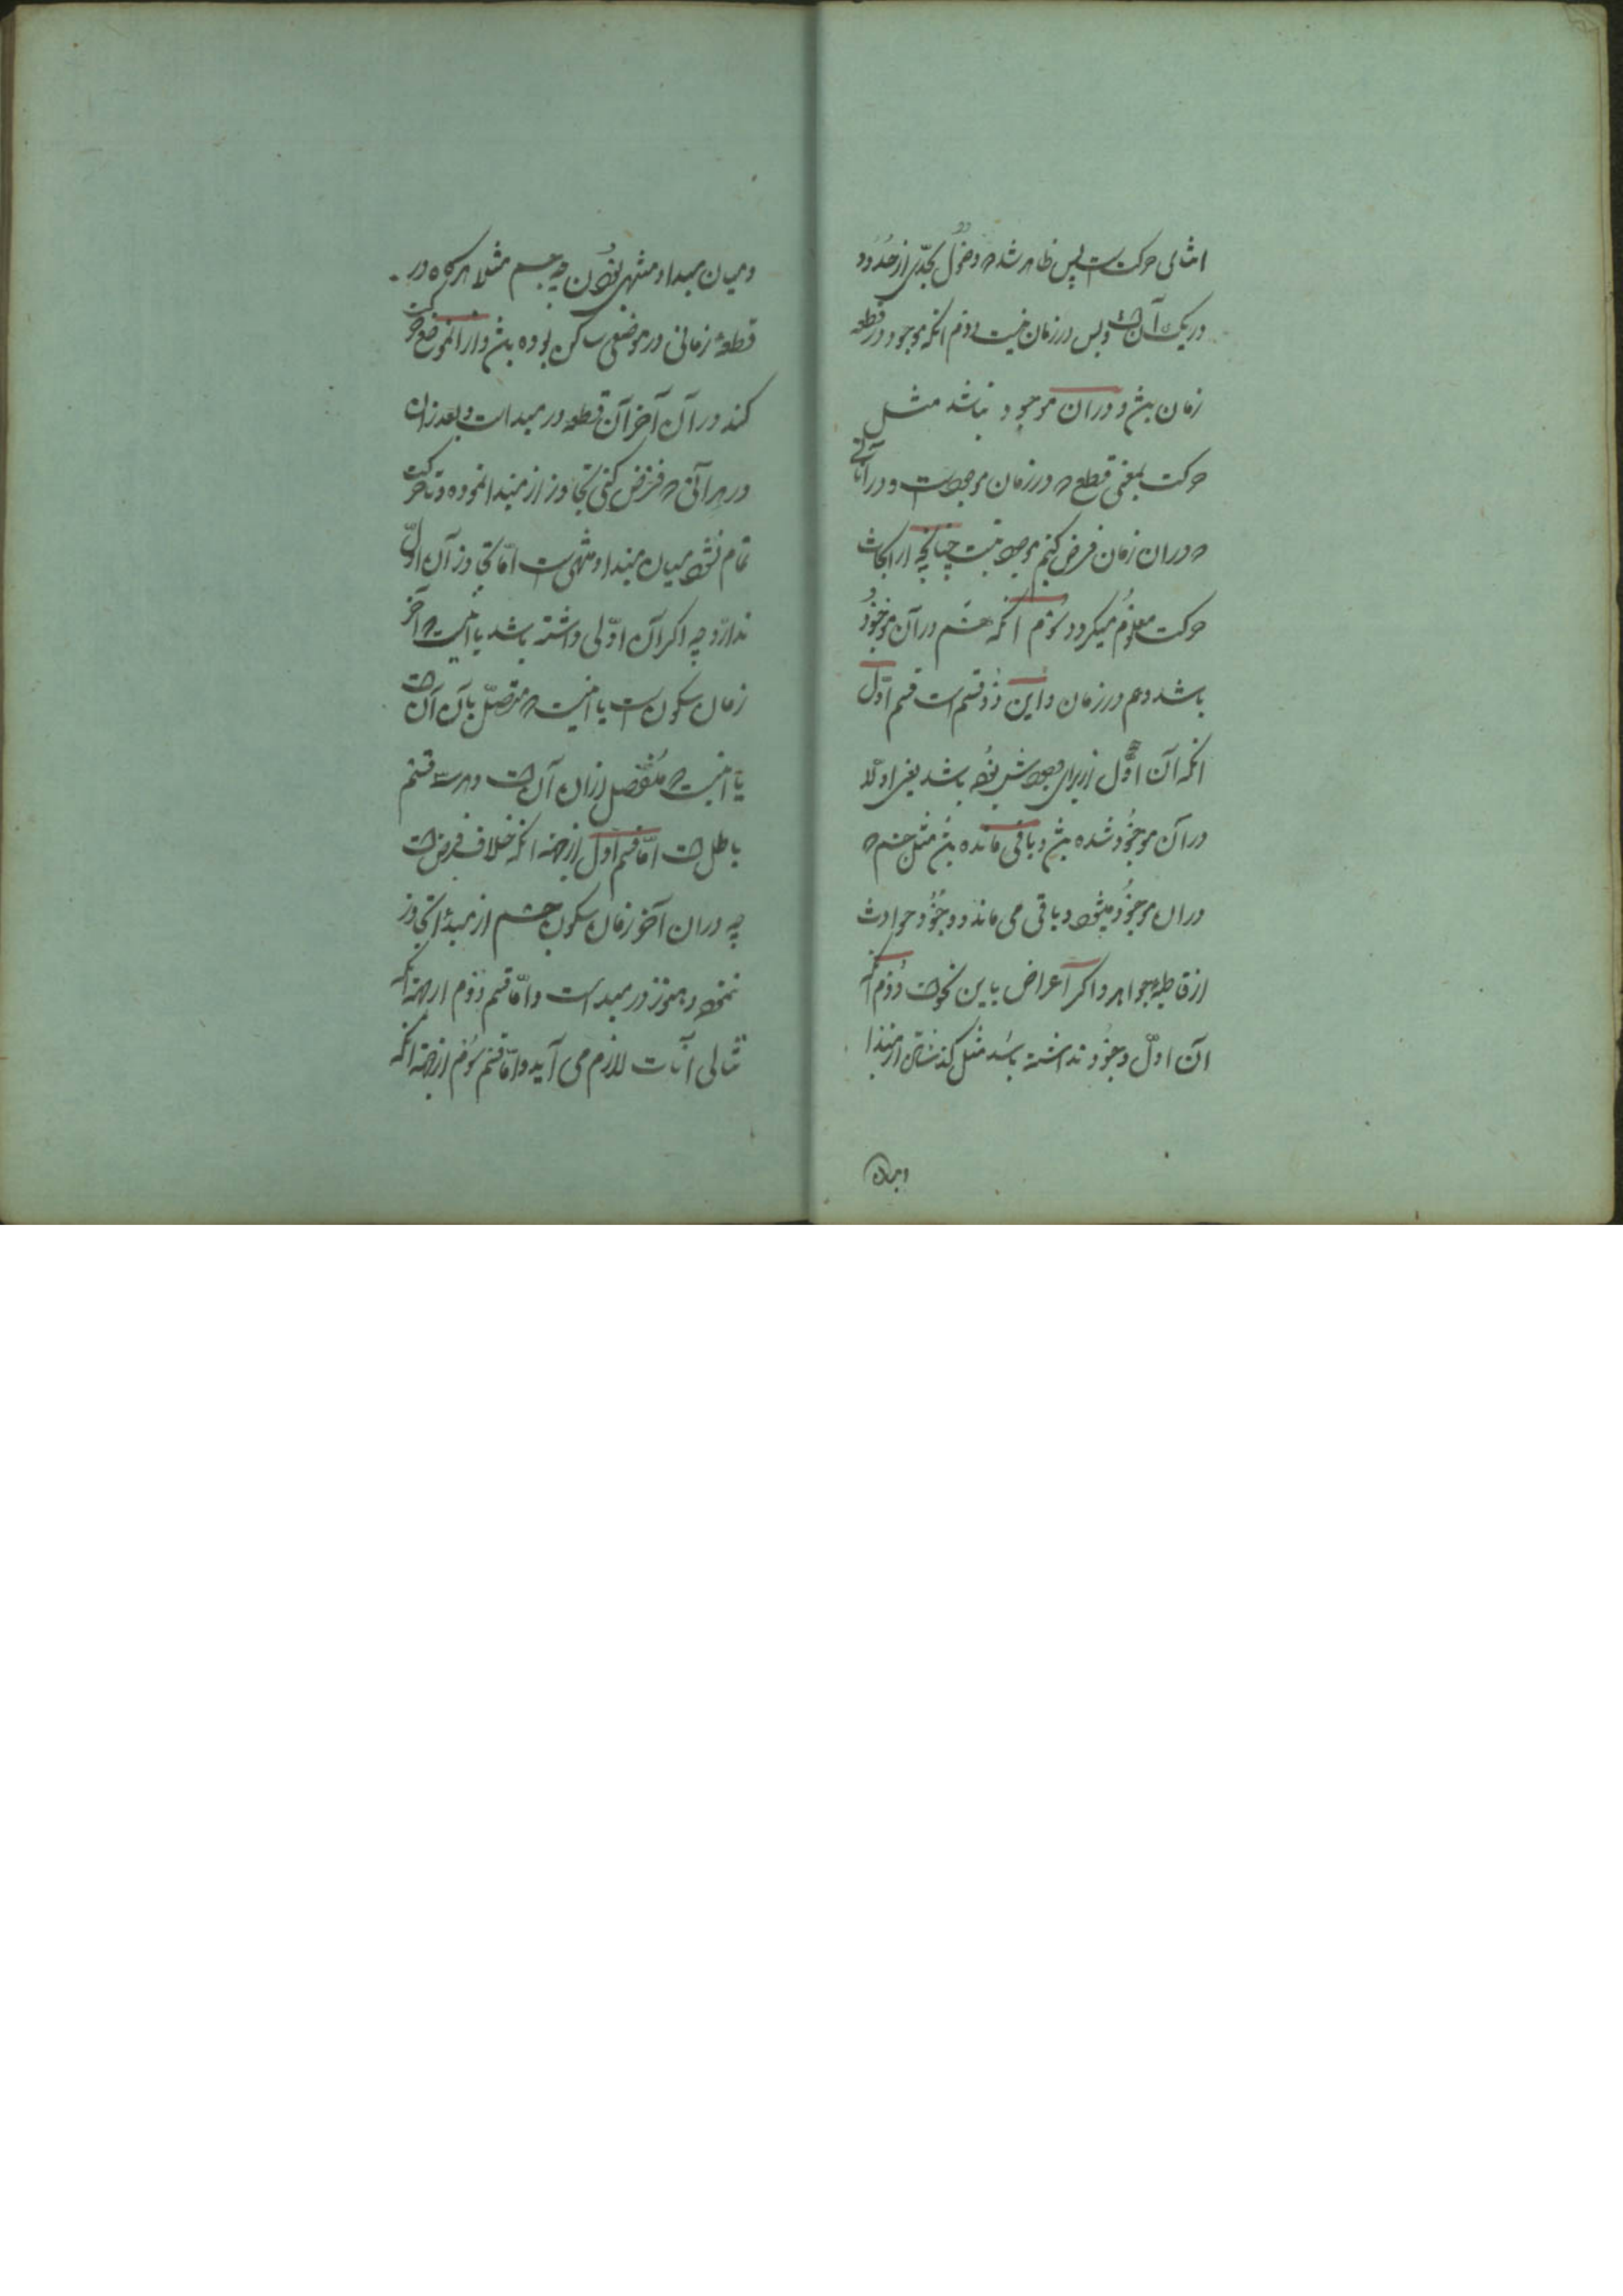 اثنای حرکتست پس ظاهر شد که وصول بحدّی از حدود
در یک آن است و بس در زمان نیست دوم انکه موجود در قطعه
زمان باشد و در ان موجود نباشد مثل
حرکت بمعنی قطع که در زمان موجودست و در آناتی
که در ان زمان فرض کنیم موجود نیست چنانچه از ابحاث
حرکت معلوم میگردد سوّم انکه هم در آن موجود
باشد و هم در زمان و این دو قسم است قسم اوّل
انکه آن اوّل از برای وجودش بوده باشد یعنی اولا
در آن موجود شده باشد و باقی مانده باشد مثل جسم که
در ان موجود میشود و باقی می ماند و وجود حوادث
از قاطبه جواهر و اکثر اعراض باین نحو است دوم انکه
آن اوّل وجود نداشته باشد مثل گذشتن از مبدا
و میان
و میان مبدا و منتهی بودن چه جسم مثلا هرگاه در
قطعه زمانی در موضعی ساکن بوده باشد و از انموضع حرکت
کند در آن آخر آن قطعه در مبدا است و بعد از ان
در هر آنی که فرض کنی تجاوز از مبدا نموده و تا حرکت
تمام نشود میان مبدا و منتهی است امّا تجاوز آن اوّل
ندارد چه اگر آن اوّلی داشته باشد یا انیست که آخر
زمان سکونست یا انیست که متصل بآن آن است
یا انیست که منفصل از ان آن است و هر سه قسم
باطل است امّا قسم اوّل از جهة انکه خلاف فرض است
چه در ان آخر زمان سکون جسم از مبدا تجاوز
ننموده و هنوز در مبدا است و امّا قسم دوّم از جهة انکه
تتالی آنات لازم می آید و امّا قسم سوّم از جهة انکه